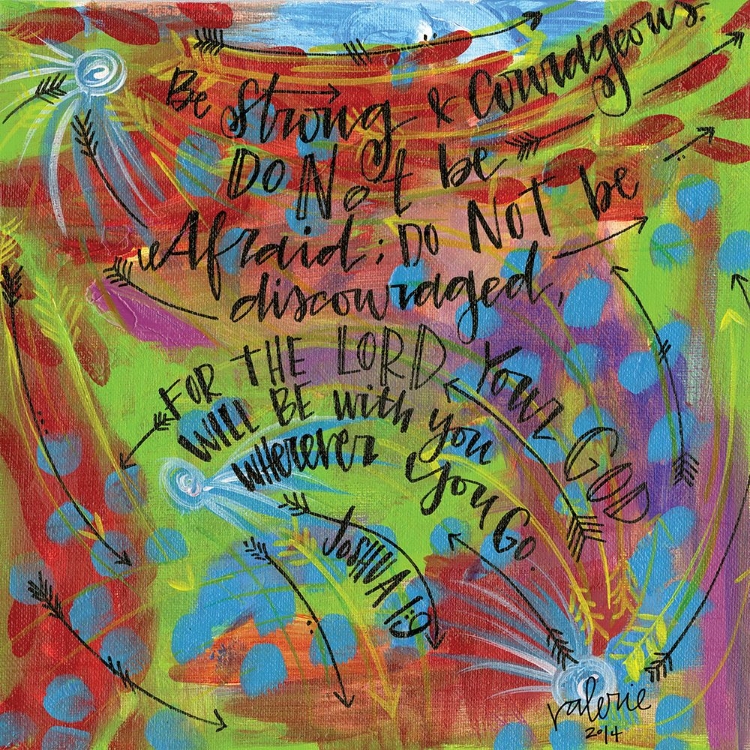 Be Strong & Courageous.
DO Not be
Afraid; DO NOT be
discouraged,
FOR THE LORD Your GOD
WILL BE with you
WHerever You Go.
JOSHUA 1:9
valerie
2014